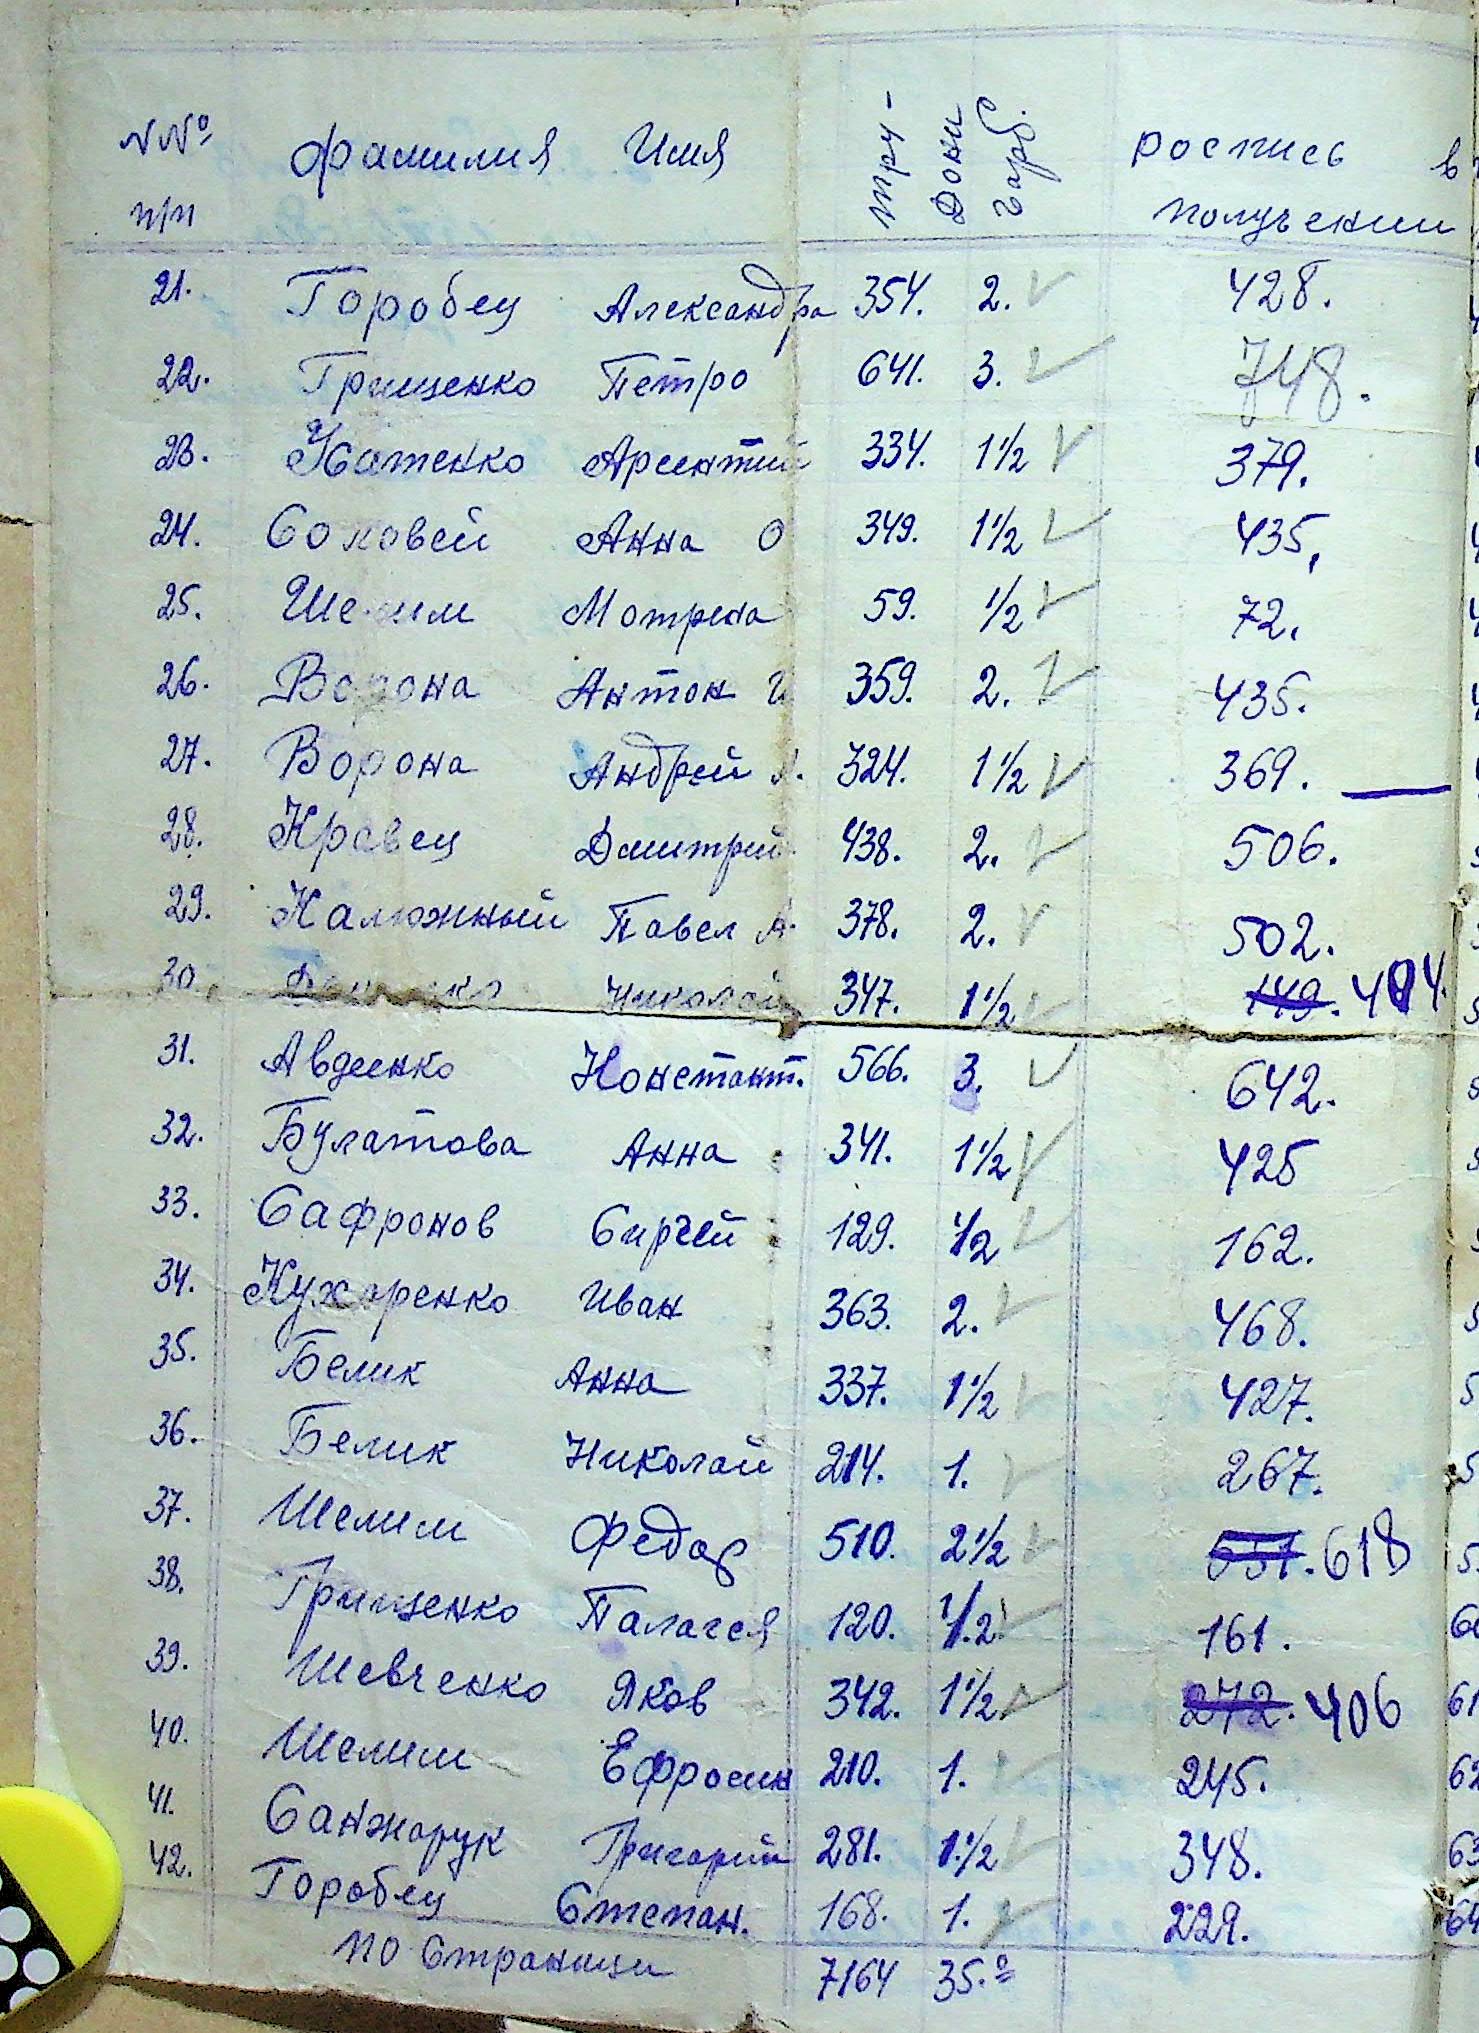 NNº Фамилия Имя тру- Дони гарб. роспись в
п/п получении
21. Горобец Александра 354. 2. 428.
22. Грищенко Петро 641. 3. 748.
23. Арсентий 334. 1 1/2 379.
24. Соловей Анна О 349. 1 1/2 435.
25. Шелим Мотрена 59. 1/2 72.
26. Ворона Антон И 359. 2. 435.
27. Ворона Андрей 324. 1 1/2 369.
28. Кравец Дмитрий 438. 2. 506.
29. Калюжный Павел А. 378. 2. 502.
30. Николай 347. 1 1/2 149. 404.
31. Авдеенко Констант. 566. 3. 642.
32. Булатова Анна 341. 1 1/2 425
33. Сафронов Сиргей 129. 1/2 162.
34. Кухаренко Иван 363. 2. 468.
35. Белик Анна 337. 1 1/2 427.
36. Белик Николай 214. 1. 267.
37. Шелим Федор 510. 2 1/2 618
38. Грищенко Палагея 120. 1/2 161.
39. Шевченко Яков 342. 1 1/2 272. 406
40. Шелим Ефросин 210. 1. 245.
41. Санжарук Григорий 281. 1 1/2 348.
42. Горобец Степан. 168. 1. 229.
по Страници 7164 35.º